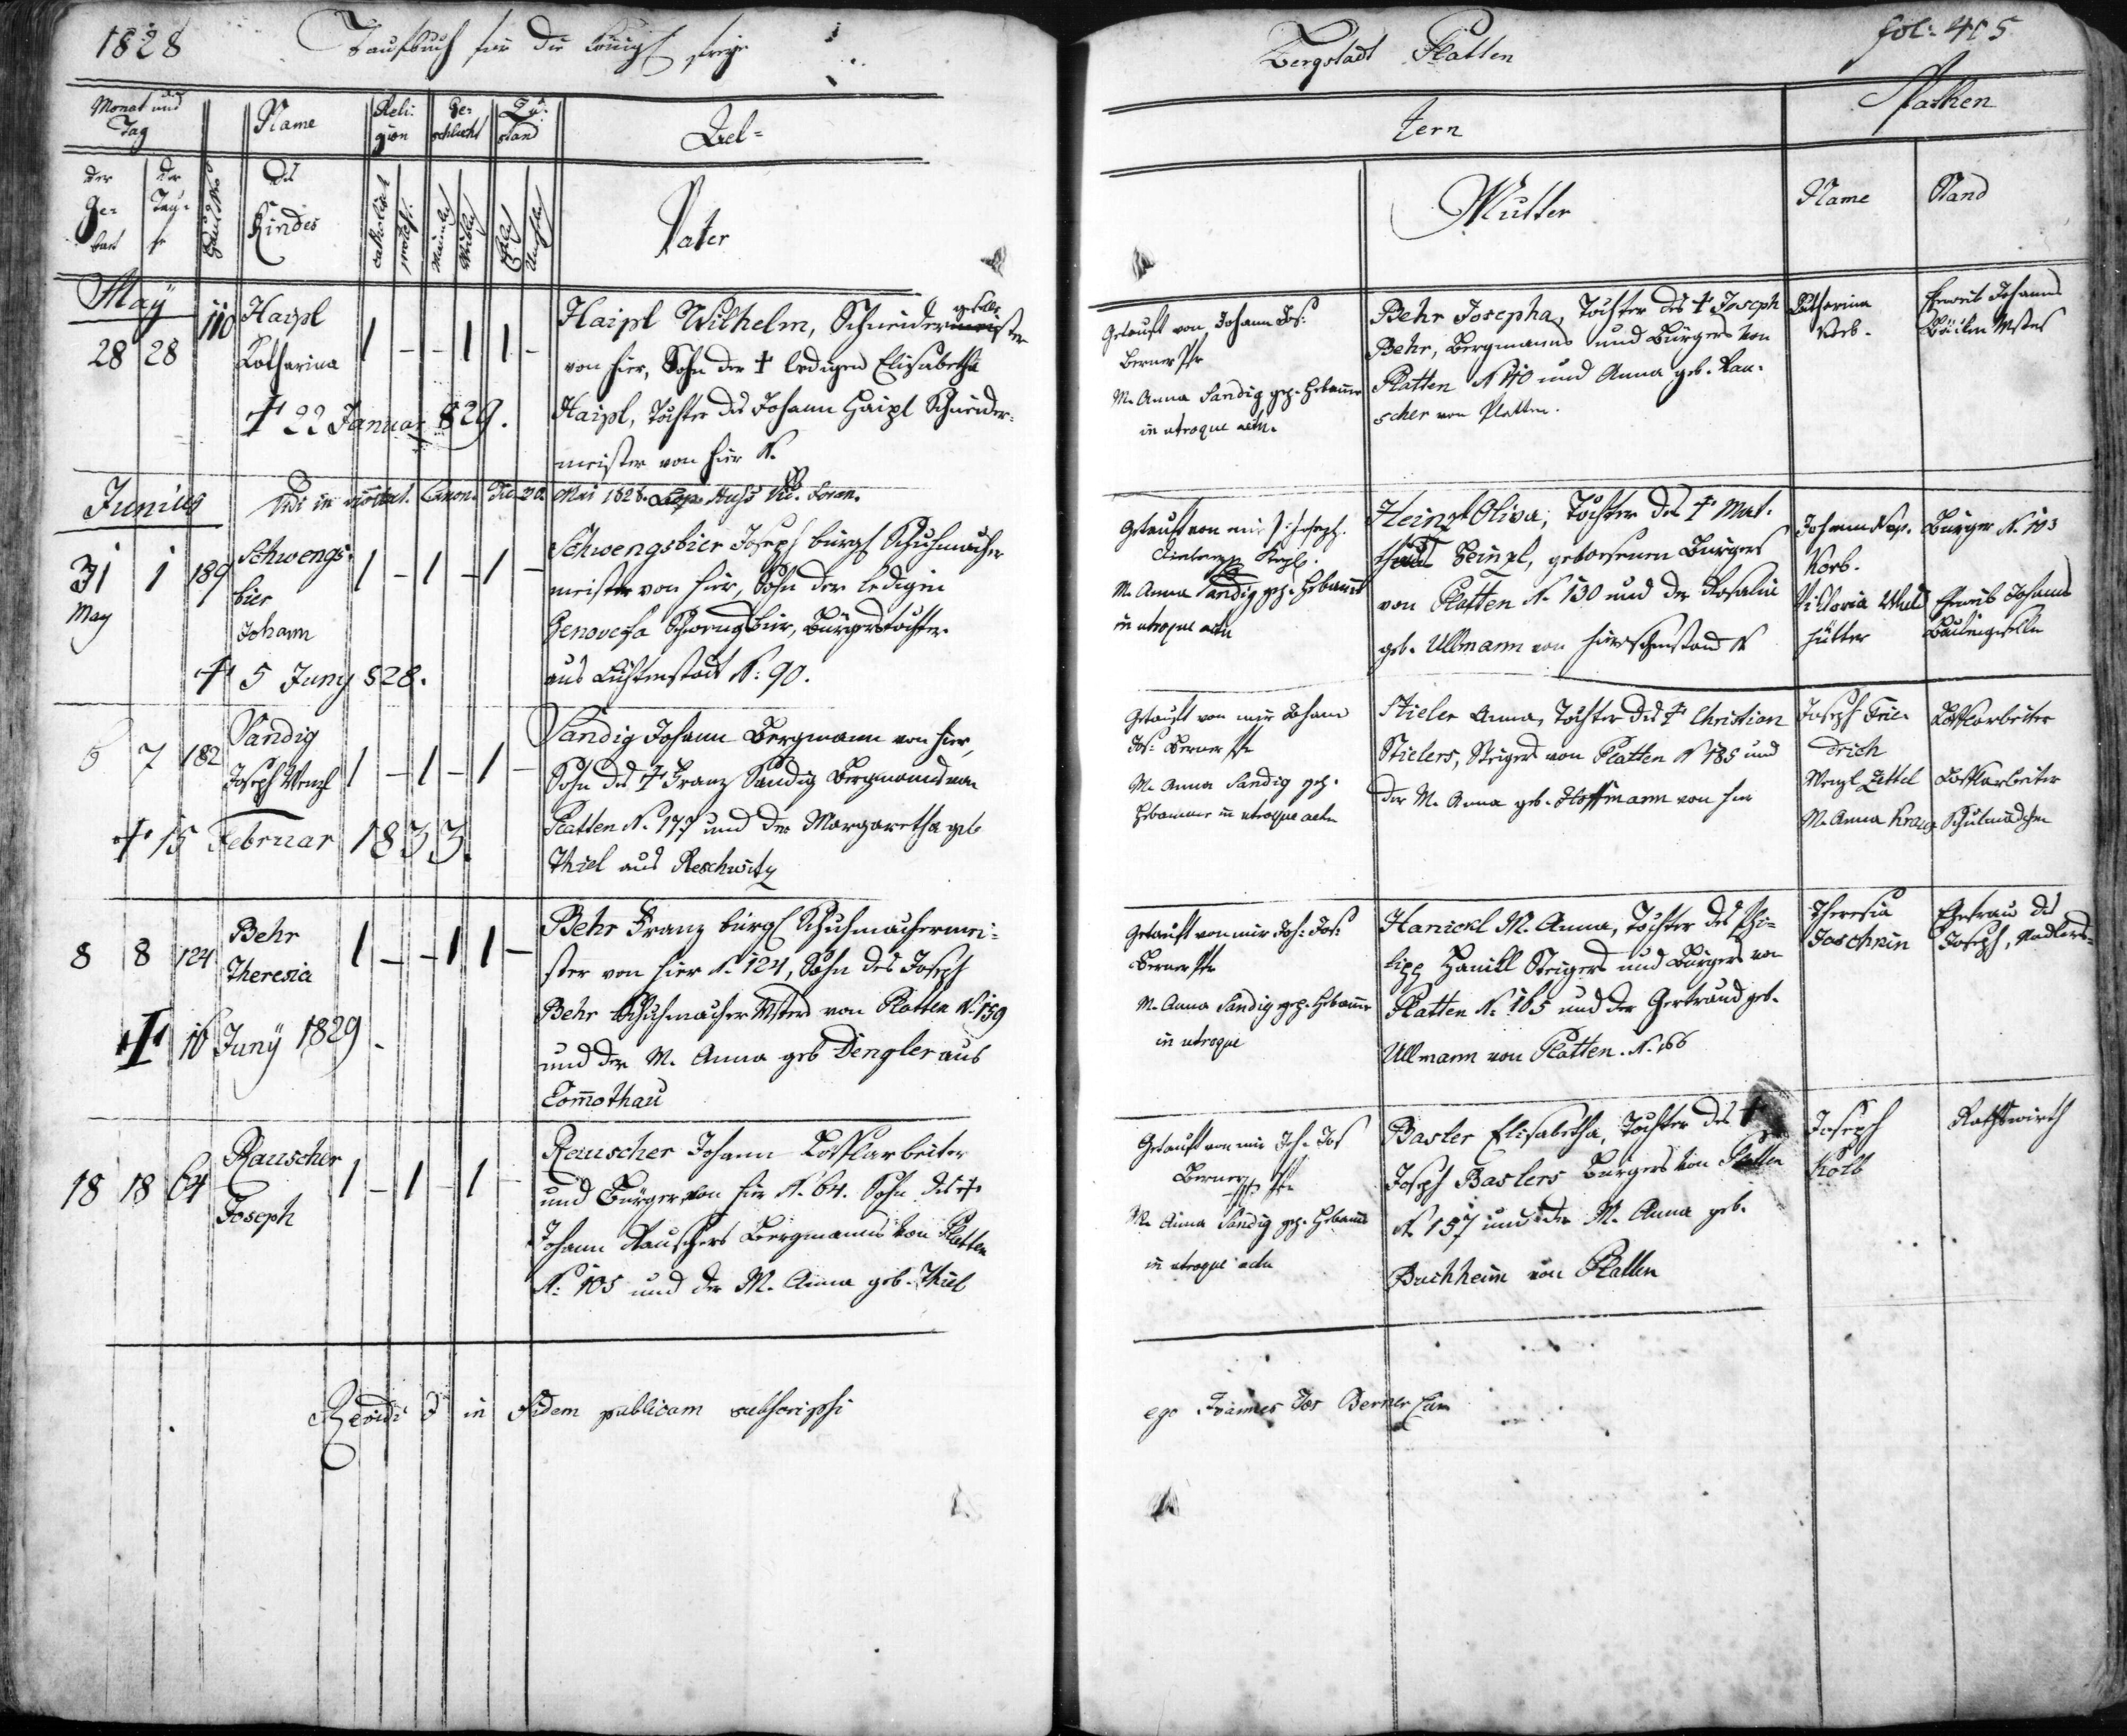 1828 Taufbuch für die königl freye
Bergstadt Platten fol: 405
Monat und
Tag
Name
Reli-
gion
Ge-
schlecht
Stand
Ael-
tern
Pathen
der
Ge-
burt
der
Tau-
fe
Haus Nro
des
Kindes
katholisch
protest.
Männlich
Weiblich
Ehelich
Unehelich
Vater
Mutter
Name
Stand
May
28 28 110
Haipl
Katharina
1 - - 1 1 -
† 22 Januar 829.
Haipl Wilhelm, Schneidermeister gesell
von hier, Sohn der † ledigen Elisabetha
Haipl, Tochter des Johann Haipl Schneider-
meister von hier N.
Getauft von Johann Jos:
Berner Pfr
M. Anna Sandig gep. Hebamme
in utroque actu.
Behr Josepha, Tochter des † Joseph
Behr, Bergmanns und Bürgers von
Platten N 110 und Anna geb. Rau-
scher von Platten.
Katharina
Korb.
Eheweib Johanns
Junius
Vidi in visitat. Canon. die 30 Mai 1828.
31 1 189
May
Schwengs-
bier
Johann
1 - 1 - 1 -
† 5 Juny 828.
Schwengsbier Joseph bürgl Schuhmacher
meister von hier, Sohn der ledigen
Genovefa Schwengsbier, Bürgerstochter
aus Lichtenstadt N: 90.
Getauft von mir Joseph
M. Anna Sandig gep. Hebamme
in utroque actu
Heinzl Oliva, Tochter des † Mat-
thäus Heinzl, gewesenen Bürgers
von Platten N. 130 und der Rosalia
geb. Ullmann von Hirschenstand N
Johann Nep.
Korb.
Viktoria
hütter
Bürger N. 103
Eheweib Johanns
6 7 182
Sandig
Joseph Wenzl
1 - 1 - 1 -
† 15 Februar 1833.
Sandig Johann Bergmann von hier,
Sohn des † Franz Sandig Bergmanns von
Platten N. 177 und der Margaretha geb
Thiel aus Reschwitz
Getauft von mir Johann
Jos: Berner Pfr
M. Anna Sandig gep.
Hebamme in utroque actu
Stieler Anna, Tochter des † Christian
Stielers, Steigers von Platten N 185 und
der M. Anna geb. Hoffmann von hier
Joseph Frie-
drich
Wenzl Zettel
M. Anna Kraus
Löfflarbeiter
Löfflarbeiter
Schulmädchen
8 8 124
Behr
Theresia
1 - - 1 1 -
† 16 Juny 1829.
Behr Franz bürgl Schuhmachermei-
ster von hier N. 124, Sohn des Joseph
Behr Schuhmacher Mstrs von Platten N. 139
und der M. Anna geb Dengler aus
Commothau
Getauft von mir Joh: Jos:
Berner Pfr
M. Anna Sandig gep. Hebamme
in utroque
Hanickl M. Anna, Tochter des Phi-
lipp Hanickl Steigers und Bürgers von
Platten N. 165 und der Gertraud geb.
Ullmann von Platten. N. 166
Theresia
Joschnin
Ehefrau des
Joseph, Nadlers-
18 18 64
Rauscher
Joseph
1 - 1 - 1 -
Rauscher Johann Löfflarbeiter
und Bürger von hier N. 64. Sohn des †
Johann Rauschers Bergmanns von Platten
N: 105 und der M. Anna geb. Thiel
Getauft von mir Joh. Jos
Berner Pfr
M. Anna Sandig gep. Hebamme
in utroque actu
Basler Elisabetha, Tochter des †
Joseph Baslers Bürgers von Platten
N. 157 und der M. Anna geb.
Buchheim von Platten
Joseph
Kolb
Rathswirth
Revidi & in fidem publicam subscripsi
ego Joannes Jos Berner